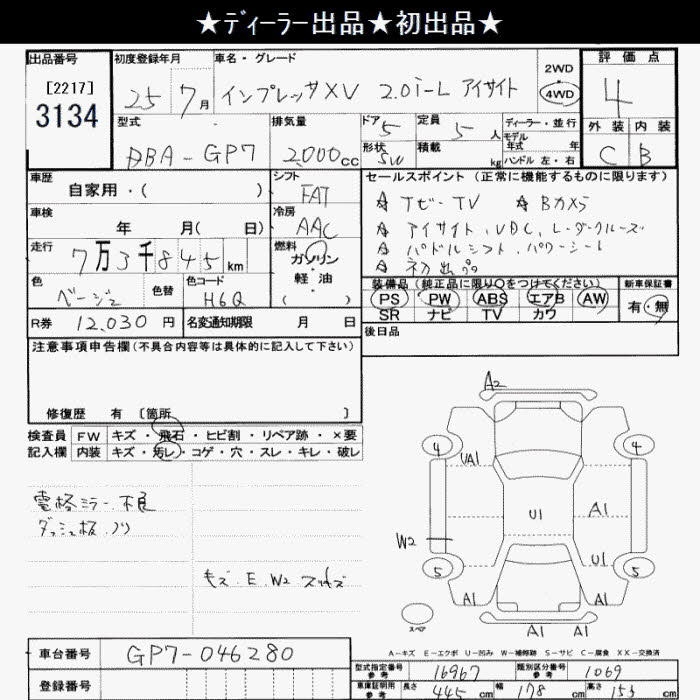 ★ディーラー出品★初出品★
出品番号
[2217]
3134
初度登録年月
25 7月
車名・グレード
インプレッサXV 2.0i-L アイサイト
2WD
4WD
評価点
4
外装 内装
C B
型式
DBA-GP7
排気量
2,000cc
ドア 5
形状 SW
定員 5人
積載 kg
ディーラー・並行
モデル年式 年
ハンドル 左・右
車歴
自家用・( )
シフト
FAT
車検
年 月( 日)
冷房
AAC
走行
7万3千845km
燃料
ガソリン・軽油・( )
色
ベージュ
色替
色コード
H6Q
R券 12,030円
名変通知期限 月 日
セールスポイント(正常に機能するものに限ります)
☆ナビ-TV ☆Bカメラ
☆アイサイト、VDC、レーダークルーズ
☆パドルシフト、パワーシート
☆初出品
装備品(純正品に限り○をつけてください)
PS PW ABS エアB AW
SR ナビ TV カワ
新車保証書
有・無
後日品
注意事項申告欄(不具合内容等は具体的に記入して下さい)
修復歴 有 [箇所 ]
検査員記入欄
FW キズ・飛石・ヒビ割・リペア跡・×要
内装 キズ・汚レ・コゲ・穴・スレ・キレ・破レ
電格ミラー不良
ダッシュ板、ノリ
キズ E W2
A2
4 4
UA1
U1
A1
W2
U1
5 5
A1 A1
スペア
A1 A1
A-キズ E-エクボ U-凹み W-補修跡 S-サビ C-腐食 XX-交換済
車台番号 GP7-046280
登録番号
型式指定番号 参考 16967
類別区分番号 参考 1069
車庫証明用 参考 長さ 445cm 幅 178cm 高さ 153cm